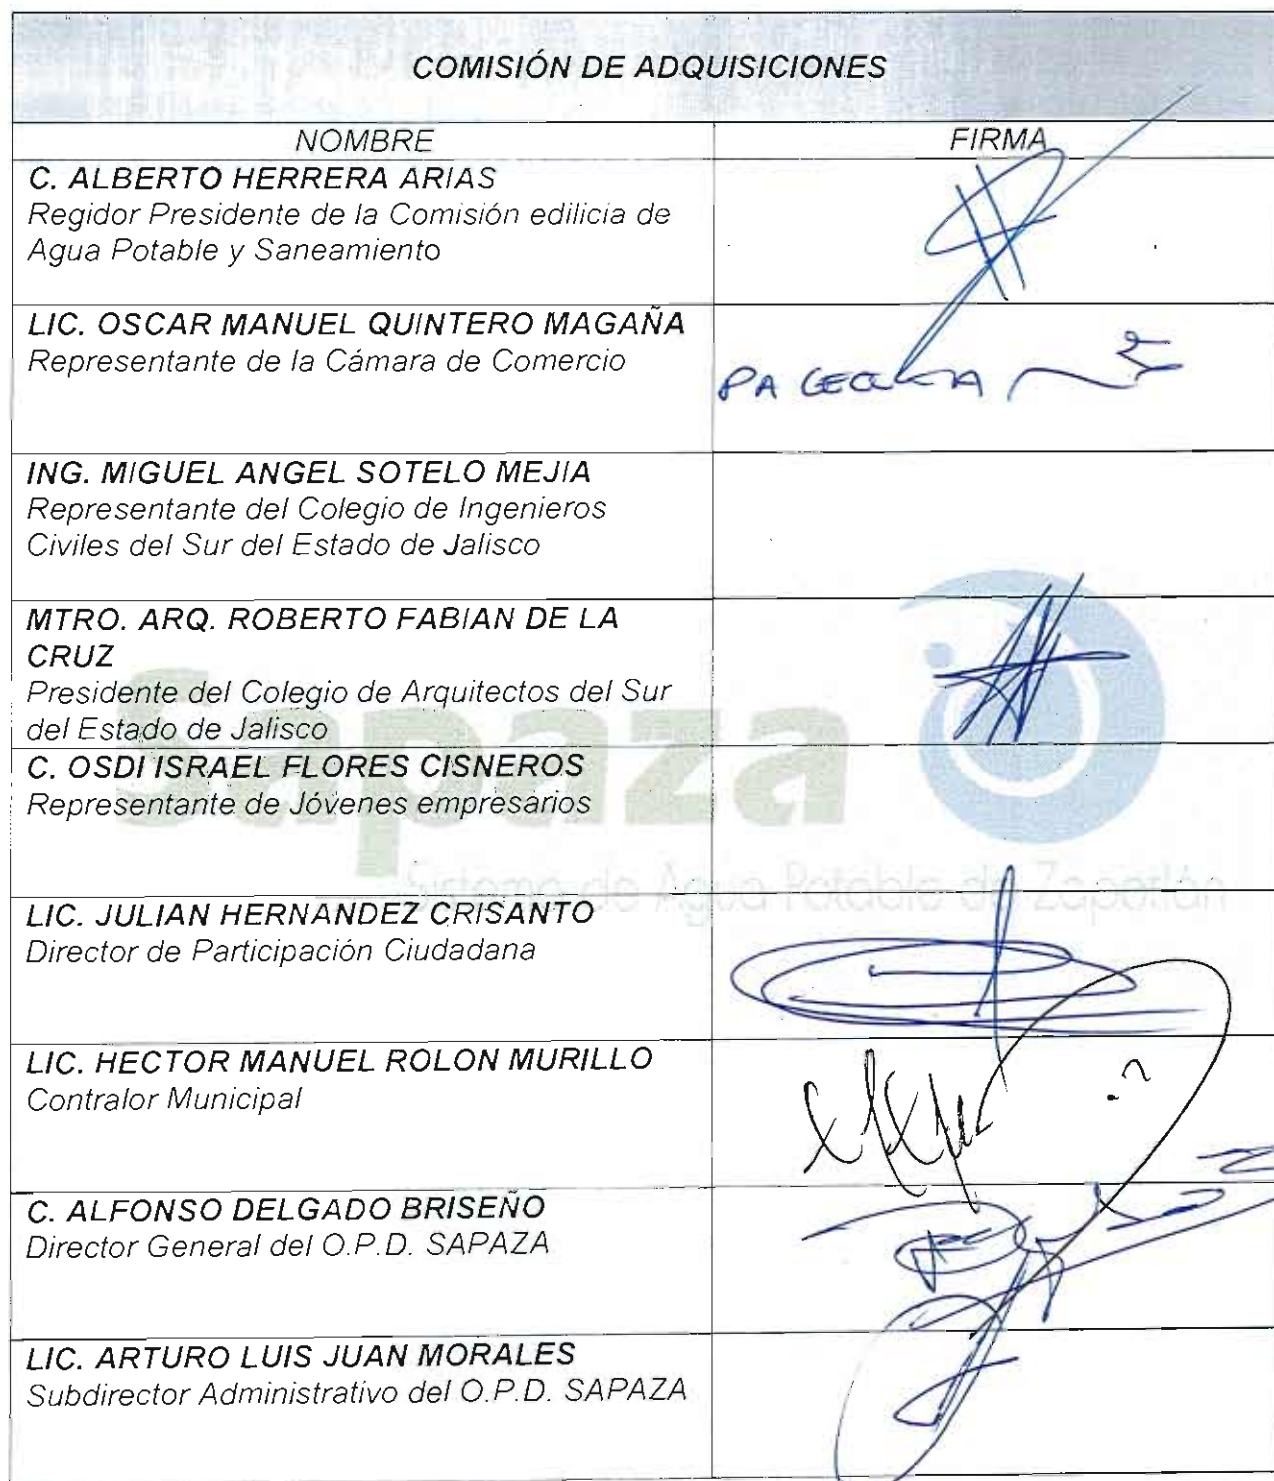 COMISIÓN DE ADQUISICIONES
NOMBRE FIRMA
C. ALBERTO HERRERA ARIAS
Regidor Presidente de la Comisión edilicia de
Agua Potable y Saneamiento
LIC. OSCAR MANUEL QUINTERO MAGAÑA
Representante de la Cámara de Comercio
PA
ING. MIGUEL ANGEL SOTELO MEJIA
Representante del Colegio de Ingenieros
Civiles del Sur del Estado de Jalisco
MTRO. ARQ. ROBERTO FABIAN DE LA
CRUZ
Presidente del Colegio de Arquitectos del Sur
del Estado de Jalisco
Sapaza
C. OSDI ISRAEL FLORES CISNEROS
Representante de Jóvenes empresarios
Sistema de Agua Potable de Zapotlán
LIC. JULIAN HERNANDEZ CRISANTO
Director de Participación Ciudadana
LIC. HECTOR MANUEL ROLON MURILLO
Contralor Municipal
C. ALFONSO DELGADO BRISEÑO
Director General del O.P.D. SAPAZA
LIC. ARTURO LUIS JUAN MORALES
Subdirector Administrativo del O.P.D. SAPAZA